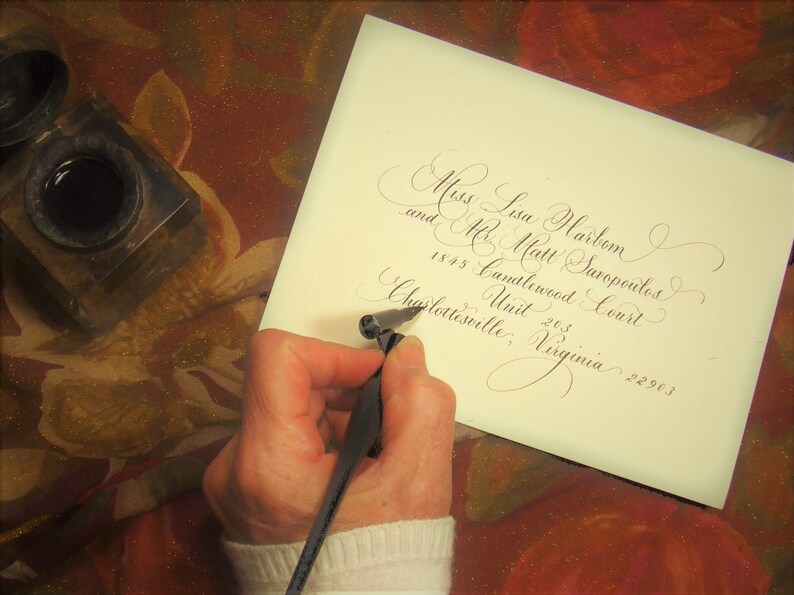 Miss Lisa Harbom
and Mr. Matt Saropoulos
1845 Candlewood Court
Unit 203
Charlottesville, Virginia 22903